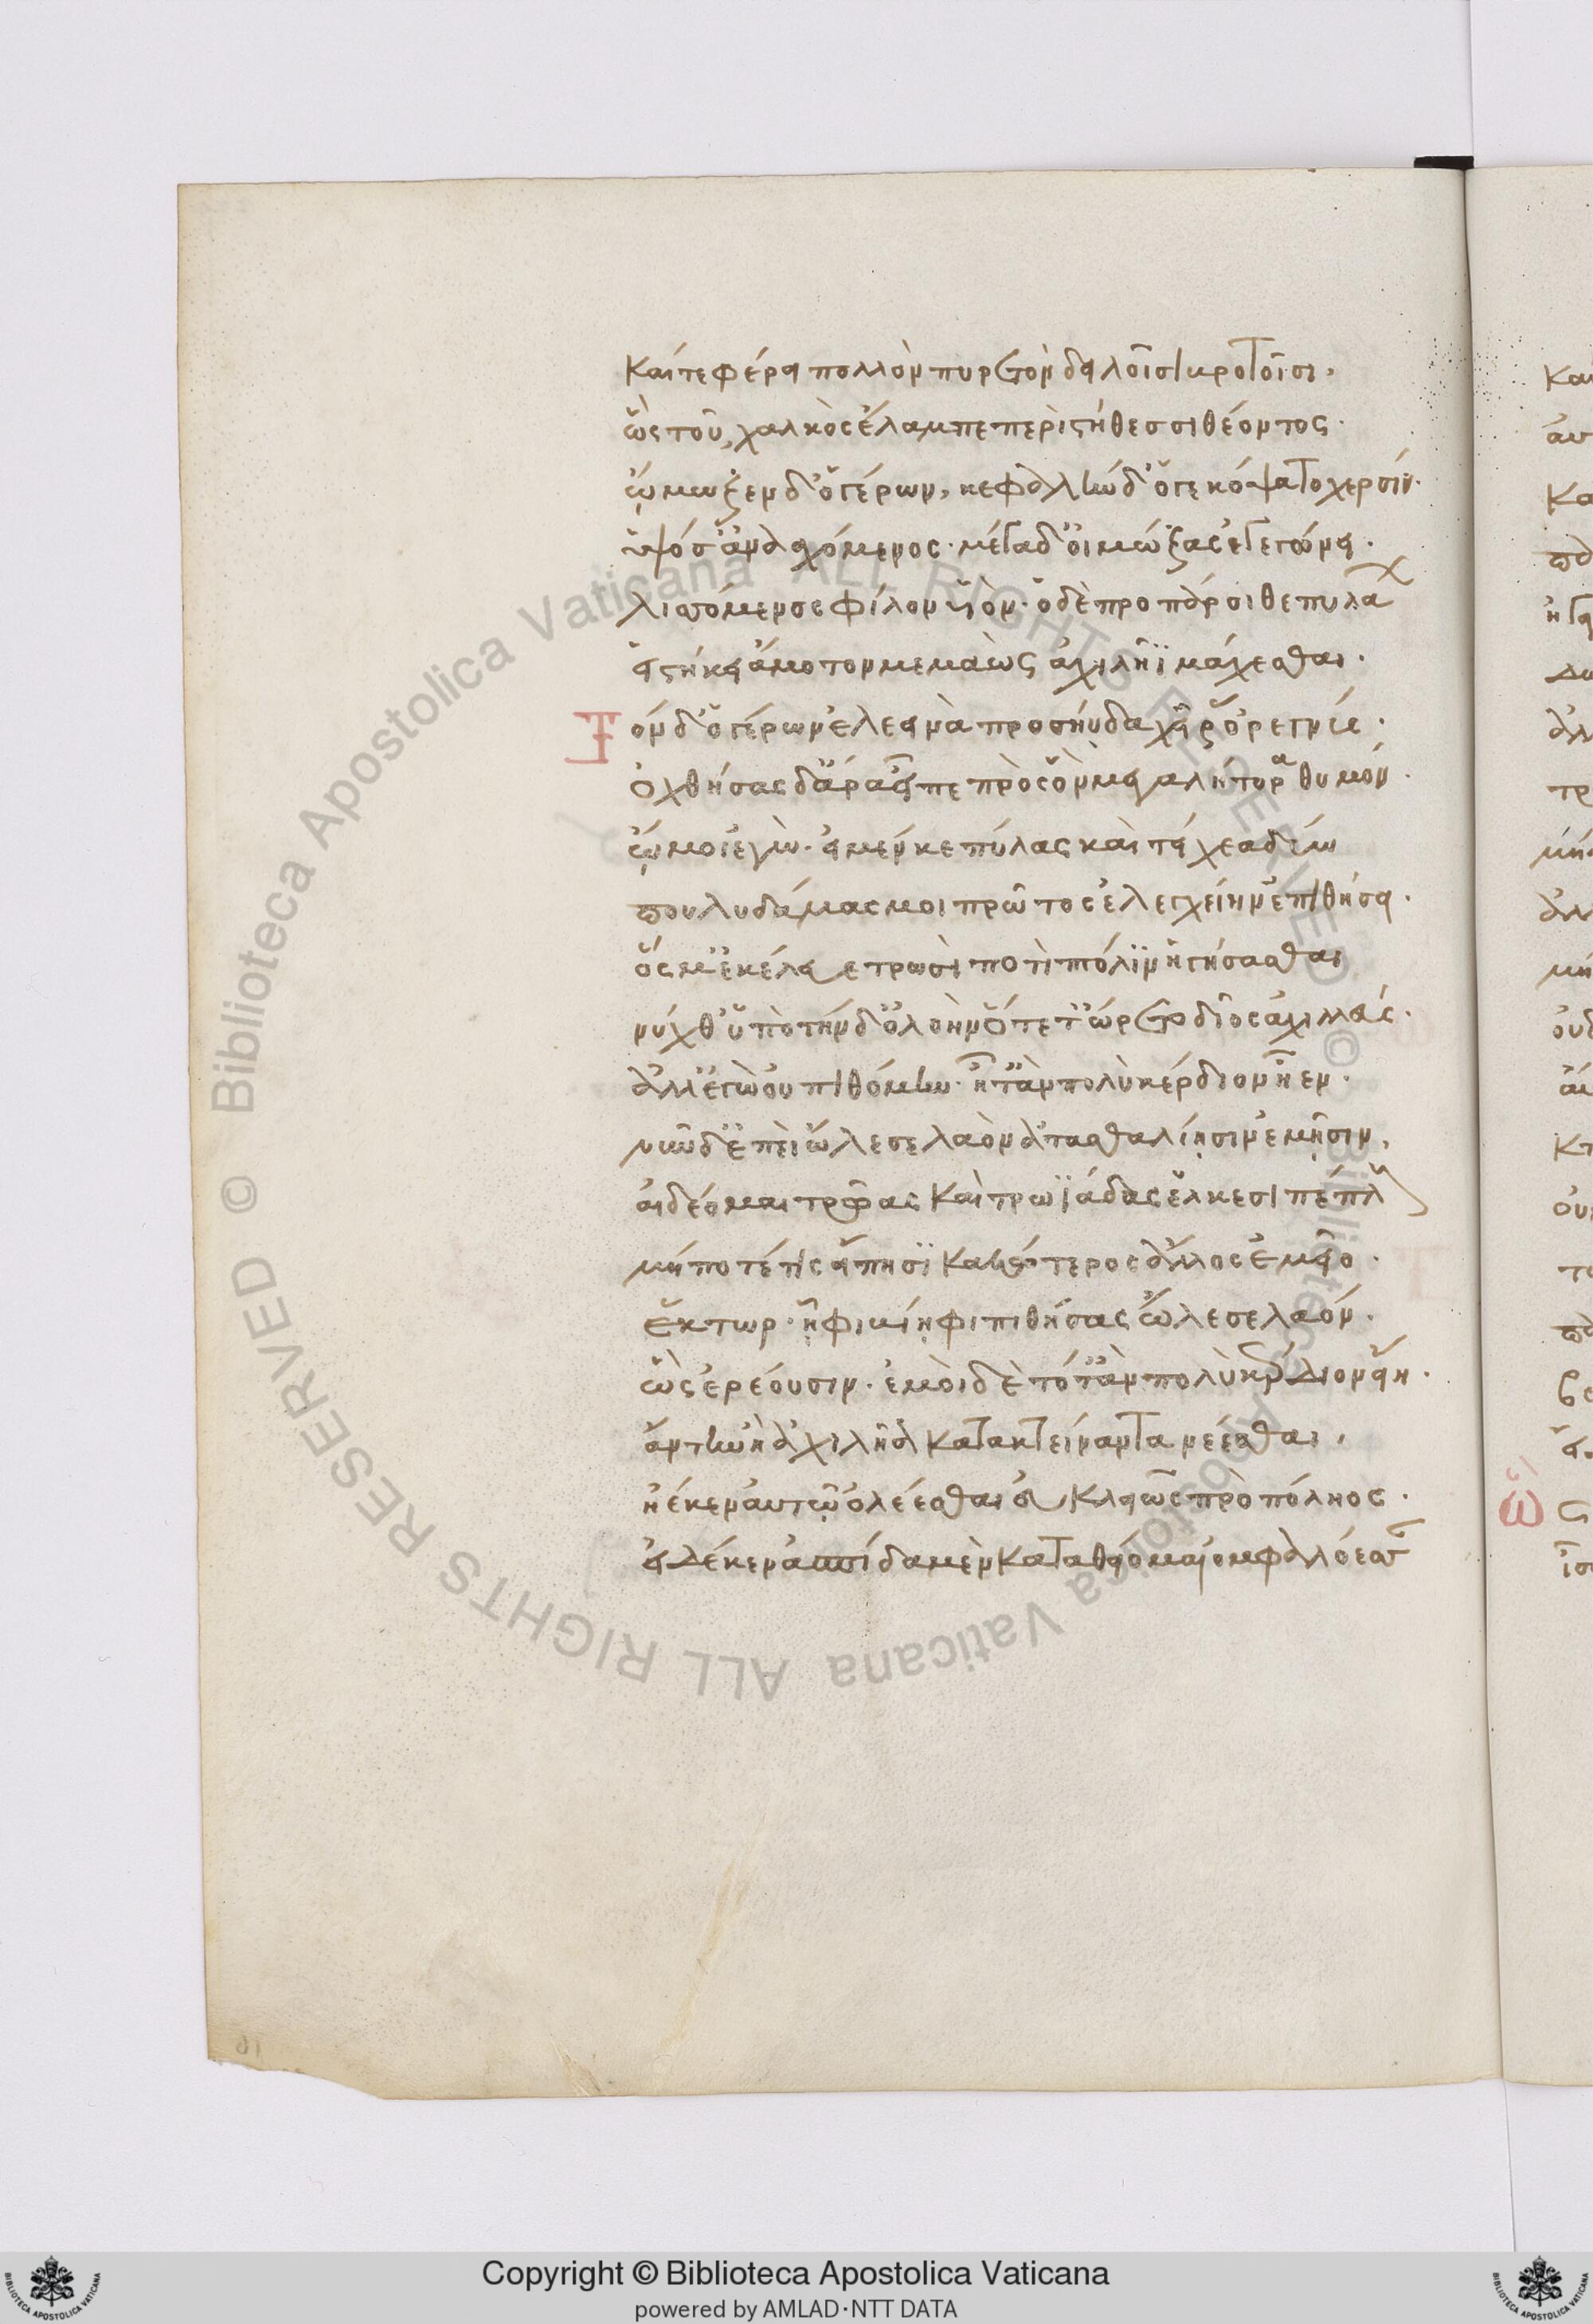 Καί τε φέρει πολλὸν πυρετὸν δειλοῖσι βροτοῖσι,
ὣς τοῦ χαλκὸς ἔλαμπε περὶ στήθεσσι θέοντος·
ᾤμωξεν δ' ὁ γέρων, κεφαλὴν δ' ὅγε κόψατο χερσίν·
ὑψόσ' ἀνασχόμενος· μέγα δ' οἰμώξας ἐγεγώνει·
λισσόμενος φίλον υἱόν· ὁ δὲ προπάροιθε πυλά
εἱστήκει ἄμοτον μεμαὼς ἀχιλῆϊ μάχεσθαι·
Τὸν δ' ὁ γέρων ἐλεεινὰ προσηύδα χεῖρ ὀρεγνύς·
ὀχθήσας δ' ἄρα εἶπε πρὸς ὃν μεγαλήτορα θυμόν·
ὤμοι ἐγὼ· εἰ μέν κε πύλας καὶ τείχεα δύω
πουλυδάμας μοι πρῶτος ἐλεγχείην ἐπιθήσει·
ὅς μ' ἐκέλευε τρωσὶ ποτὶ πόλϊν ἡγήσασθαι
νύχθ' ὕπο τήνδ' ὀλοὴν ὅτε τ' ὤρετο δῖος ἀχιλλεύς·
ἀλλ' ἐγὼ οὐ πιθόμην· ἦ τ' ἂν πολὺ κέρδιον ἦεν·
νῦν δ' ἐπεὶ ὤλεσε λαὸν ἀτασθαλίῃσιν ἐμῇσιν,
αἰδέομαι τρῶας Καὶ τρωϊάδας ἑλκεσιπέπλ
μή ποτέ τις εἴπησϊ Κακώτερος ἄλλος ἐμεῖο·
ἕκτωρ· ἧφι βίηφι πιθήσας ὤλεσε λαόν·
ὣς ἐρέουσιν· ἐμοὶ δὲ τότ' ἂν πολὺ κέρδιον εἴη·
ἄντην ἢ ἀχιλῆα Κατακτείναντα νέεσθαι,
ἠέ κεν αὐτῷ ὀλέεσθαι ἐϋκλειῶς πρὸ πόληος·
εἰ δέ κεν ἀσπίδα μὲν Καταθείομαι ὀμφαλόεσσαν